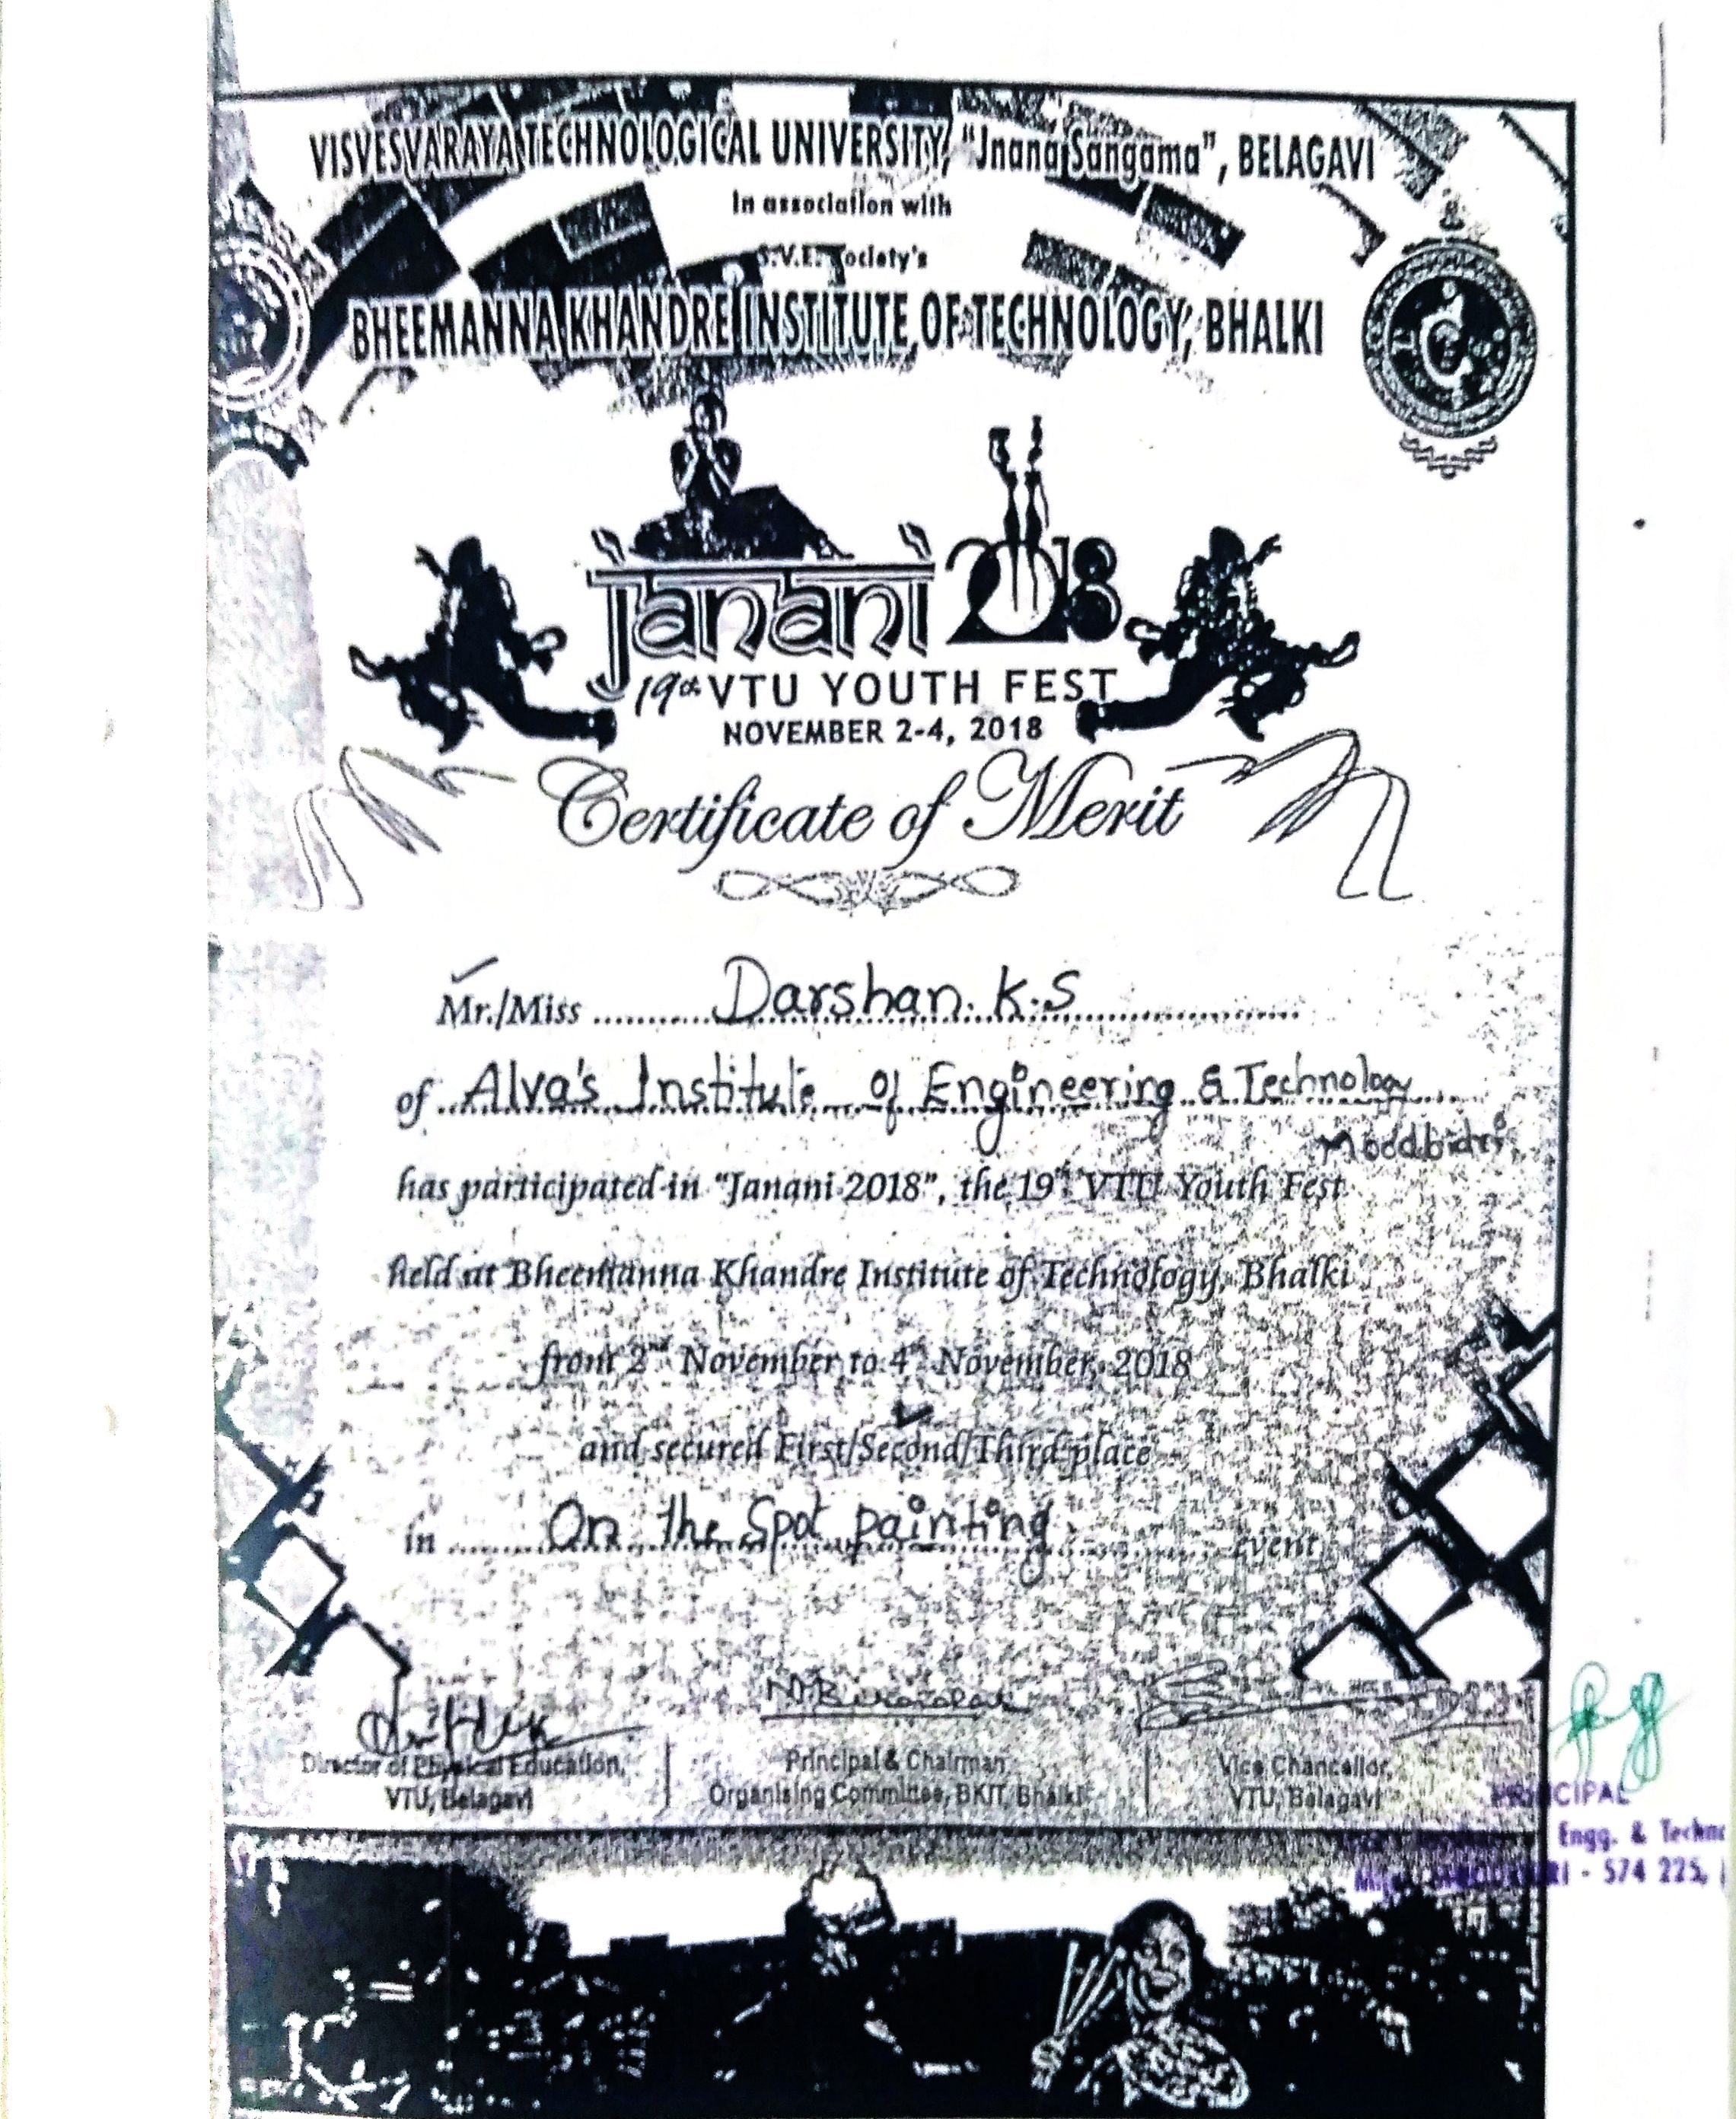 VISVESVARAYA TECHNOLOGICAL UNIVERSITY, "Jnana Sangama", BELAGAVI
In association with
S.V.E. Society's
BHEEMANNA KHANDRE INSTITUTE OF TECHNOLOGY, BHALKI
Janani 2018
19th VTU YOUTH FEST
NOVEMBER 2-4, 2018
Certificate of Merit
Mr./Miss Darshan. K.S
of Alva's Institute of Engineering & Technology
Moodbidri,
has participated in "Janani 2018", the 19th VTU Youth Fest
held at Bheemanna Khandre Institute of Technology, Bhalki
from 2nd November to 4th November, 2018
and secured First/Second/Third place
in On the Spot painting event
Director of Physical Education,
VTU, Belagavi
Principal & Chairman
Organising Committee, BKIT, Bhalki
Vice Chancellor,
VTU, Belagavi
PRINCIPAL
Engg. & Techno
- 574 225,